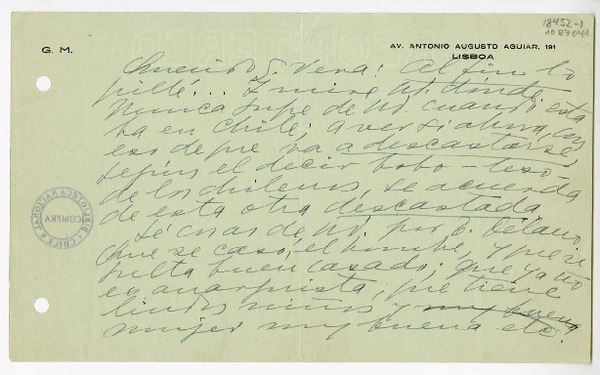 18452-1
1089041
G. M.
AV. ANTONIO AUGUSTO AGUIAR, 191
LISBOA
Querido G. Vera: Al fin lo
pillé... I mire Ud. dónde
Nunca supe de Ud. cuando esta
ba en Chile; a ver si ahora, con
eso de que va a descastarse,
según el decir bobo-teso-
de los chilenos, se acuerda
de esta otra descastada.
Sé cosas de Ud. por G. Délano,
Que se casó, el hombre, y que re
sulta buen casado; que ya no
es anarquista; que tiene
lindos niños y muy buena
mujer muy buena etc.
BIBLIOTECA NACIONAL
CHILE
COMPRA